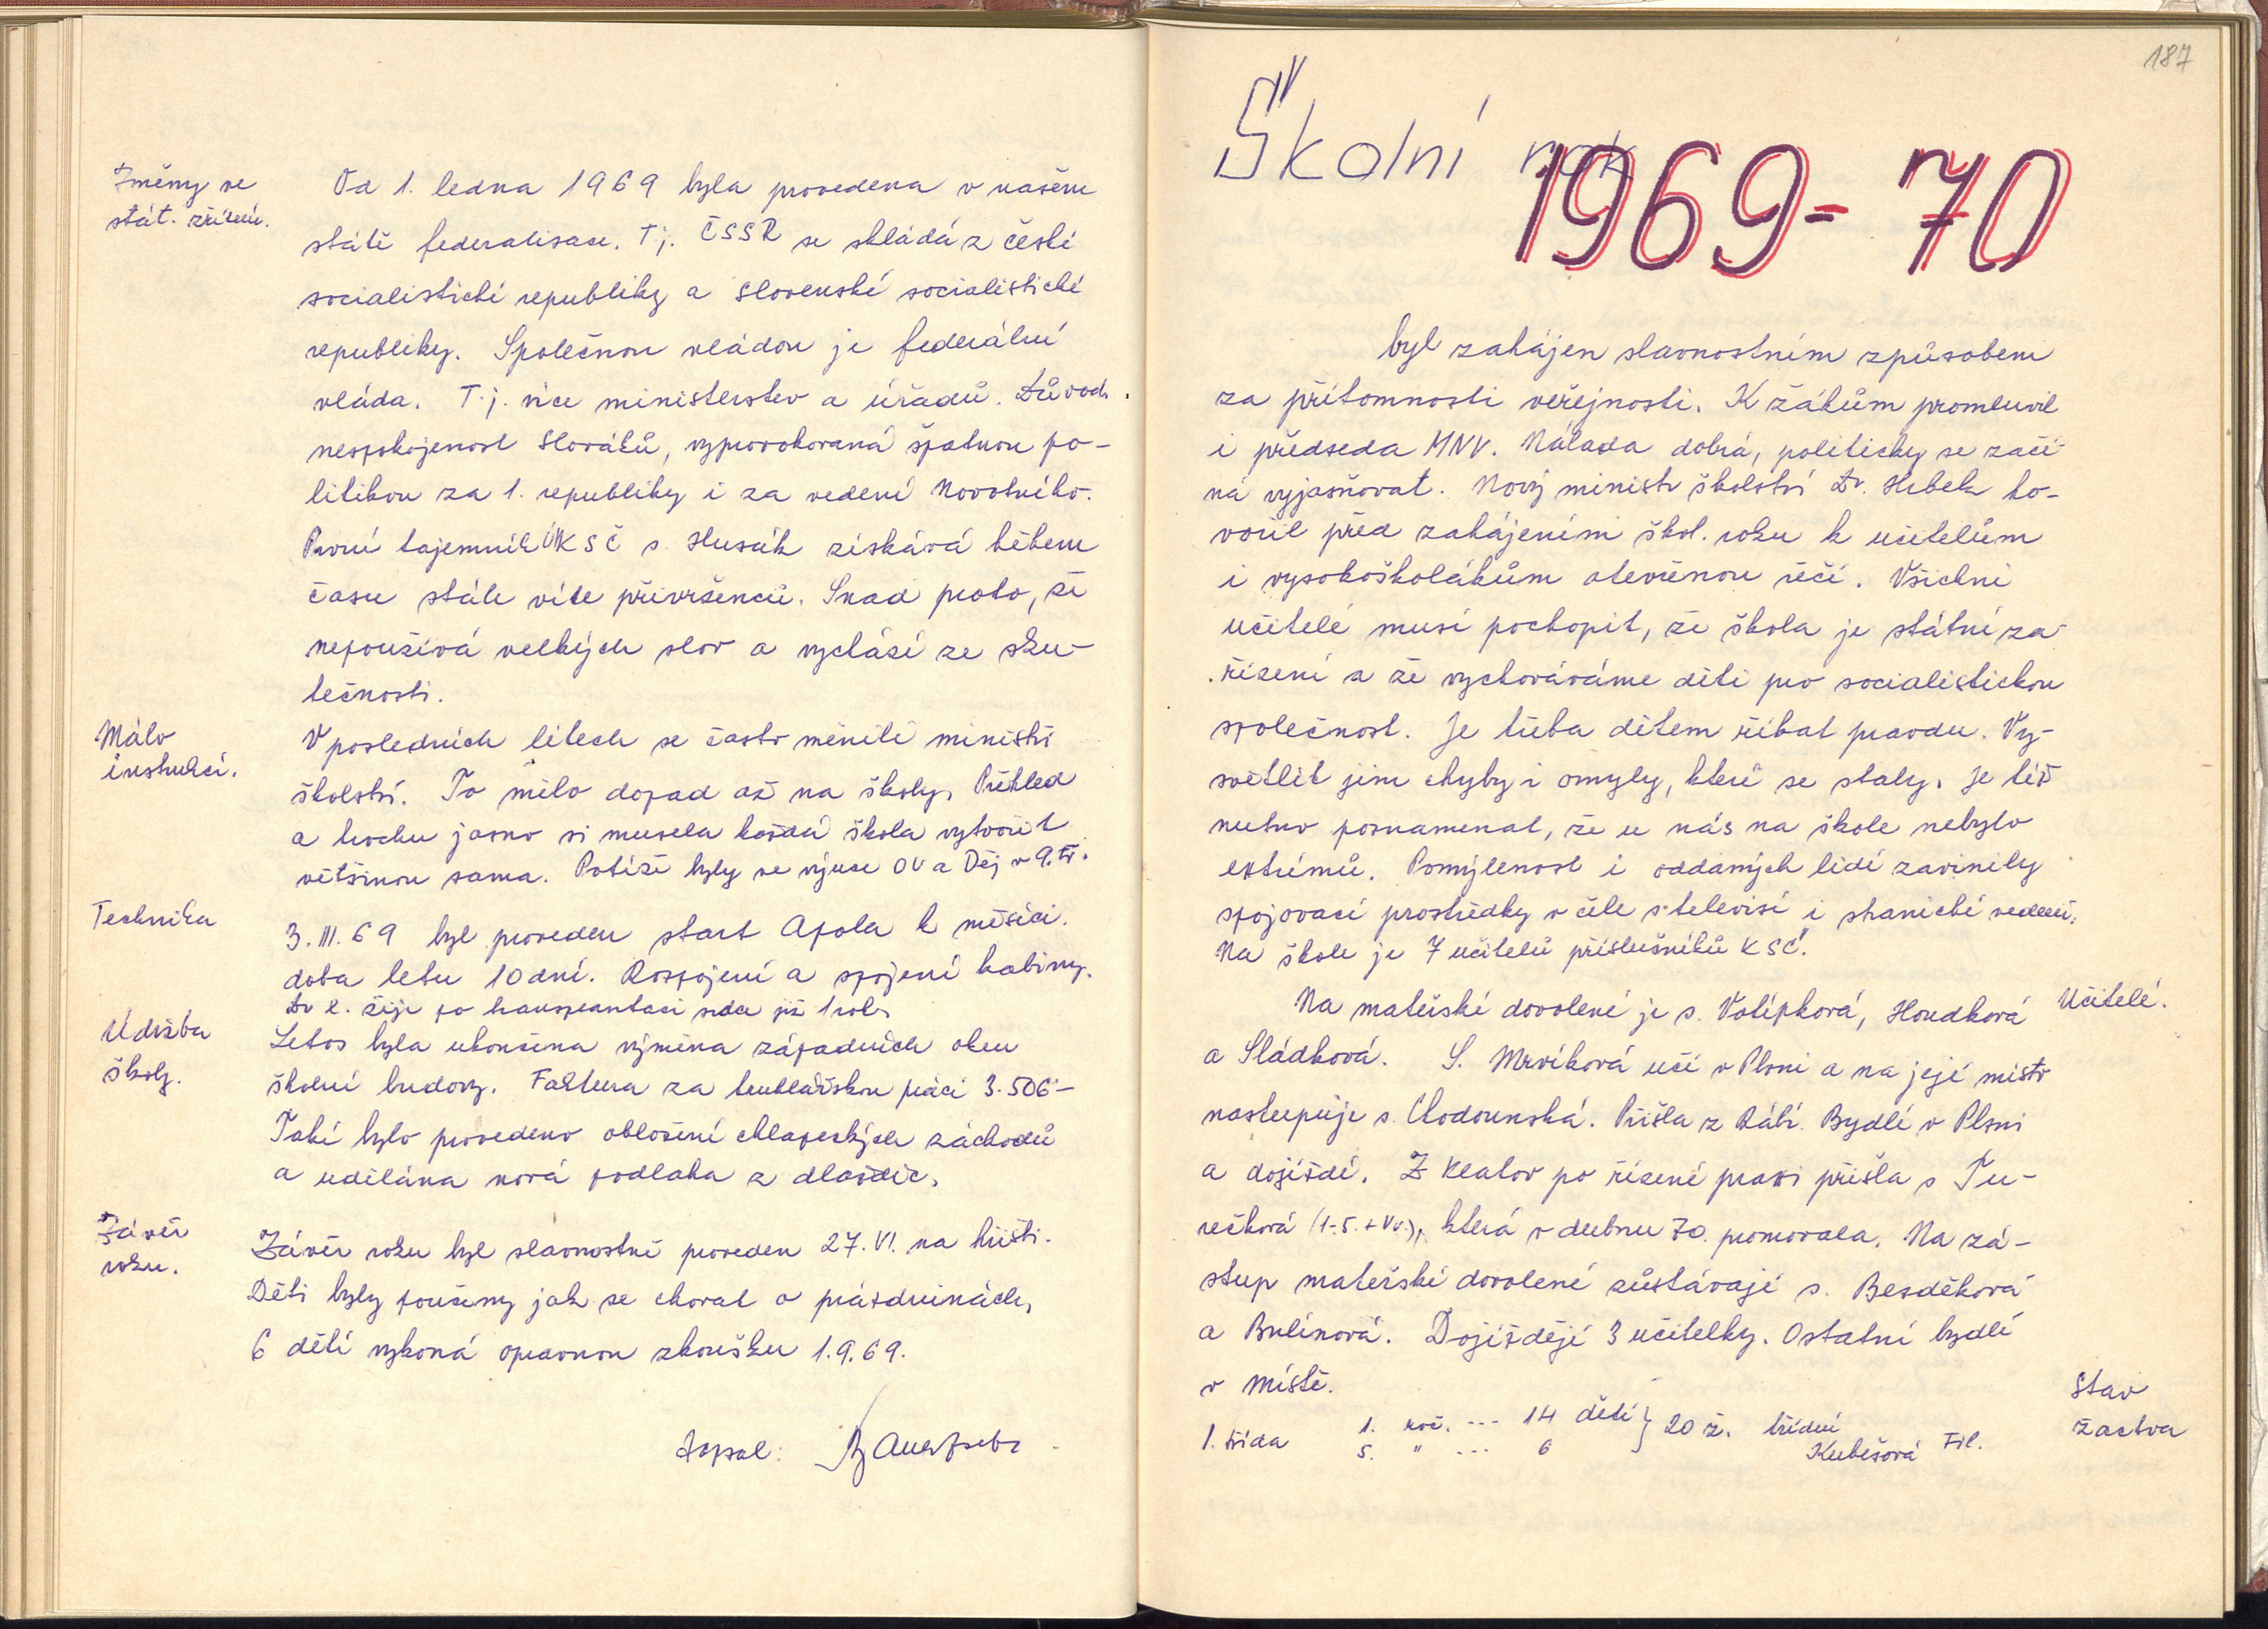 Změny ve
stát. zřízení.
Od 1. ledna 1969 byla provedena v našem
státě federalisace. T.j. ČSSR se skládá z české
socialistické republiky a Slovenské socialistické
republiky. Společnou vládou je federální
vláda. T.j. více ministerstev a úřadů. Důvod.
nespokojenost Slováků, vyprovokovaná špatnou po-
litikou za 1. republiky i za vedení Novotného.
První tajemník ÚV KSČ s. Husák získává během
času stále více přívrženců. Snad proto, že
nepoužívá velkých slov a vychází ze sku-
tečnosti.
Málo
instrukcí.
V posledních létech se často měnili ministři
školství. To mělo dopad až na školy. Přehled
a trochu jasno si musela každá škola vytvořit
většinou sama. Potíže byly ve výuce OV a Děj v 9. tř.
Technika
3. III. 69 byl proveden start Apola k měsíci.
doba letu 10 dní. Rozpojení a spojení kabiny.
Dr B. žije po transplantaci srdce již 1 rok.
Údržba
školy.
Letos byla ukončena výměna západních oken
školní budovy. Faktura za truhlářskou práci 3.506-
Také bylo provedeno obložení chlapeckých záchodů
a udělána nová podlaha z dlaždic.
Závěr
roku.
Závěr roku byl slavnostně proveden 27. VI. na hřišti.
Děti byly poučeny jak se chovat o prázdninách,
6 dětí vykoná opravnou zkoušku 1.9.69.
Zapsal:
187
Školní rok
1969-70
byl zahájen slavnostním způsobem
za přítomnosti veřejnosti. K žákům promluvil
i předseda MNV. Nálada dobrá, politicky se začí-
ná vyjasňovat. Nový ministr školství Dr. Hrbek ho-
vořil před zahájením škol. roku k učitelům
i vysokoškolákům otevřenou řečí. Všichni
učitelé musí pochopit, že škola je státní za-
řízení a že vychováváme děti pro socialistickou
společnost. Je třeba dětem říkat pravdu. Vy-
světlit jim chyby i omyly, které se staly. Je též
nutno poznamenat, že u nás na škole nebylo
extrémů. Pomýlenost i oddaných lidí zavinily
spojovací prostředky v čele s televisí i stranické vedení.
Na škole je 7 učitelů příslušníků KSČ.
Učitelé.
Na mateřské dovolené je s. Volípková, Houdková
a Sládková. S. Mrvíková učí v Plzni a na její místo
nastupuje s. Chodounská. Přišla z Rábí. Bydlí v Plzni
a dojíždí. Z Klatov po řízené praxi přišla s Tu-
rečková (1.-5. + Vv.), která v dubnu 70. promovala. Na zá-
stup mateřské dovolené zůstávají s. Bezděková
a Bulínová. Dojíždějí 3 učitelky. Ostatní bydlí
v místě.
Stav
žactva
1. třída 1. roč. --- 14 dětí } 20 ž. třídní
5. " --- 6 Kubešová Fil.